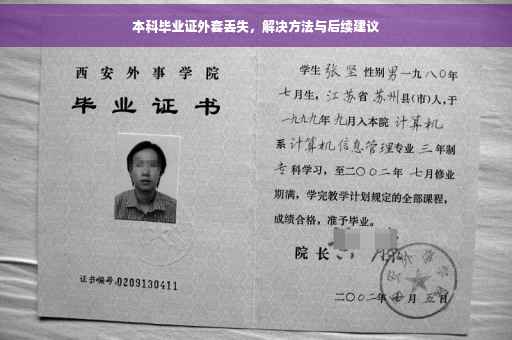 本科毕业证外套丢失，解决方法与后续建议
西安外事学院
毕业证书
证书编号:0209130411
学生 张坚 性别 男 一九八〇年
七月生，江苏省 苏州县(市)人，于
一九九九年 九月入本院 计算机
系 计算机信息管理专业 三 年制
专科学习，至二〇〇二年 七月修业
期满，学完教学计划规定的全部课程，
成绩合格，准予毕业。
院长
二〇〇二年 七月 五日